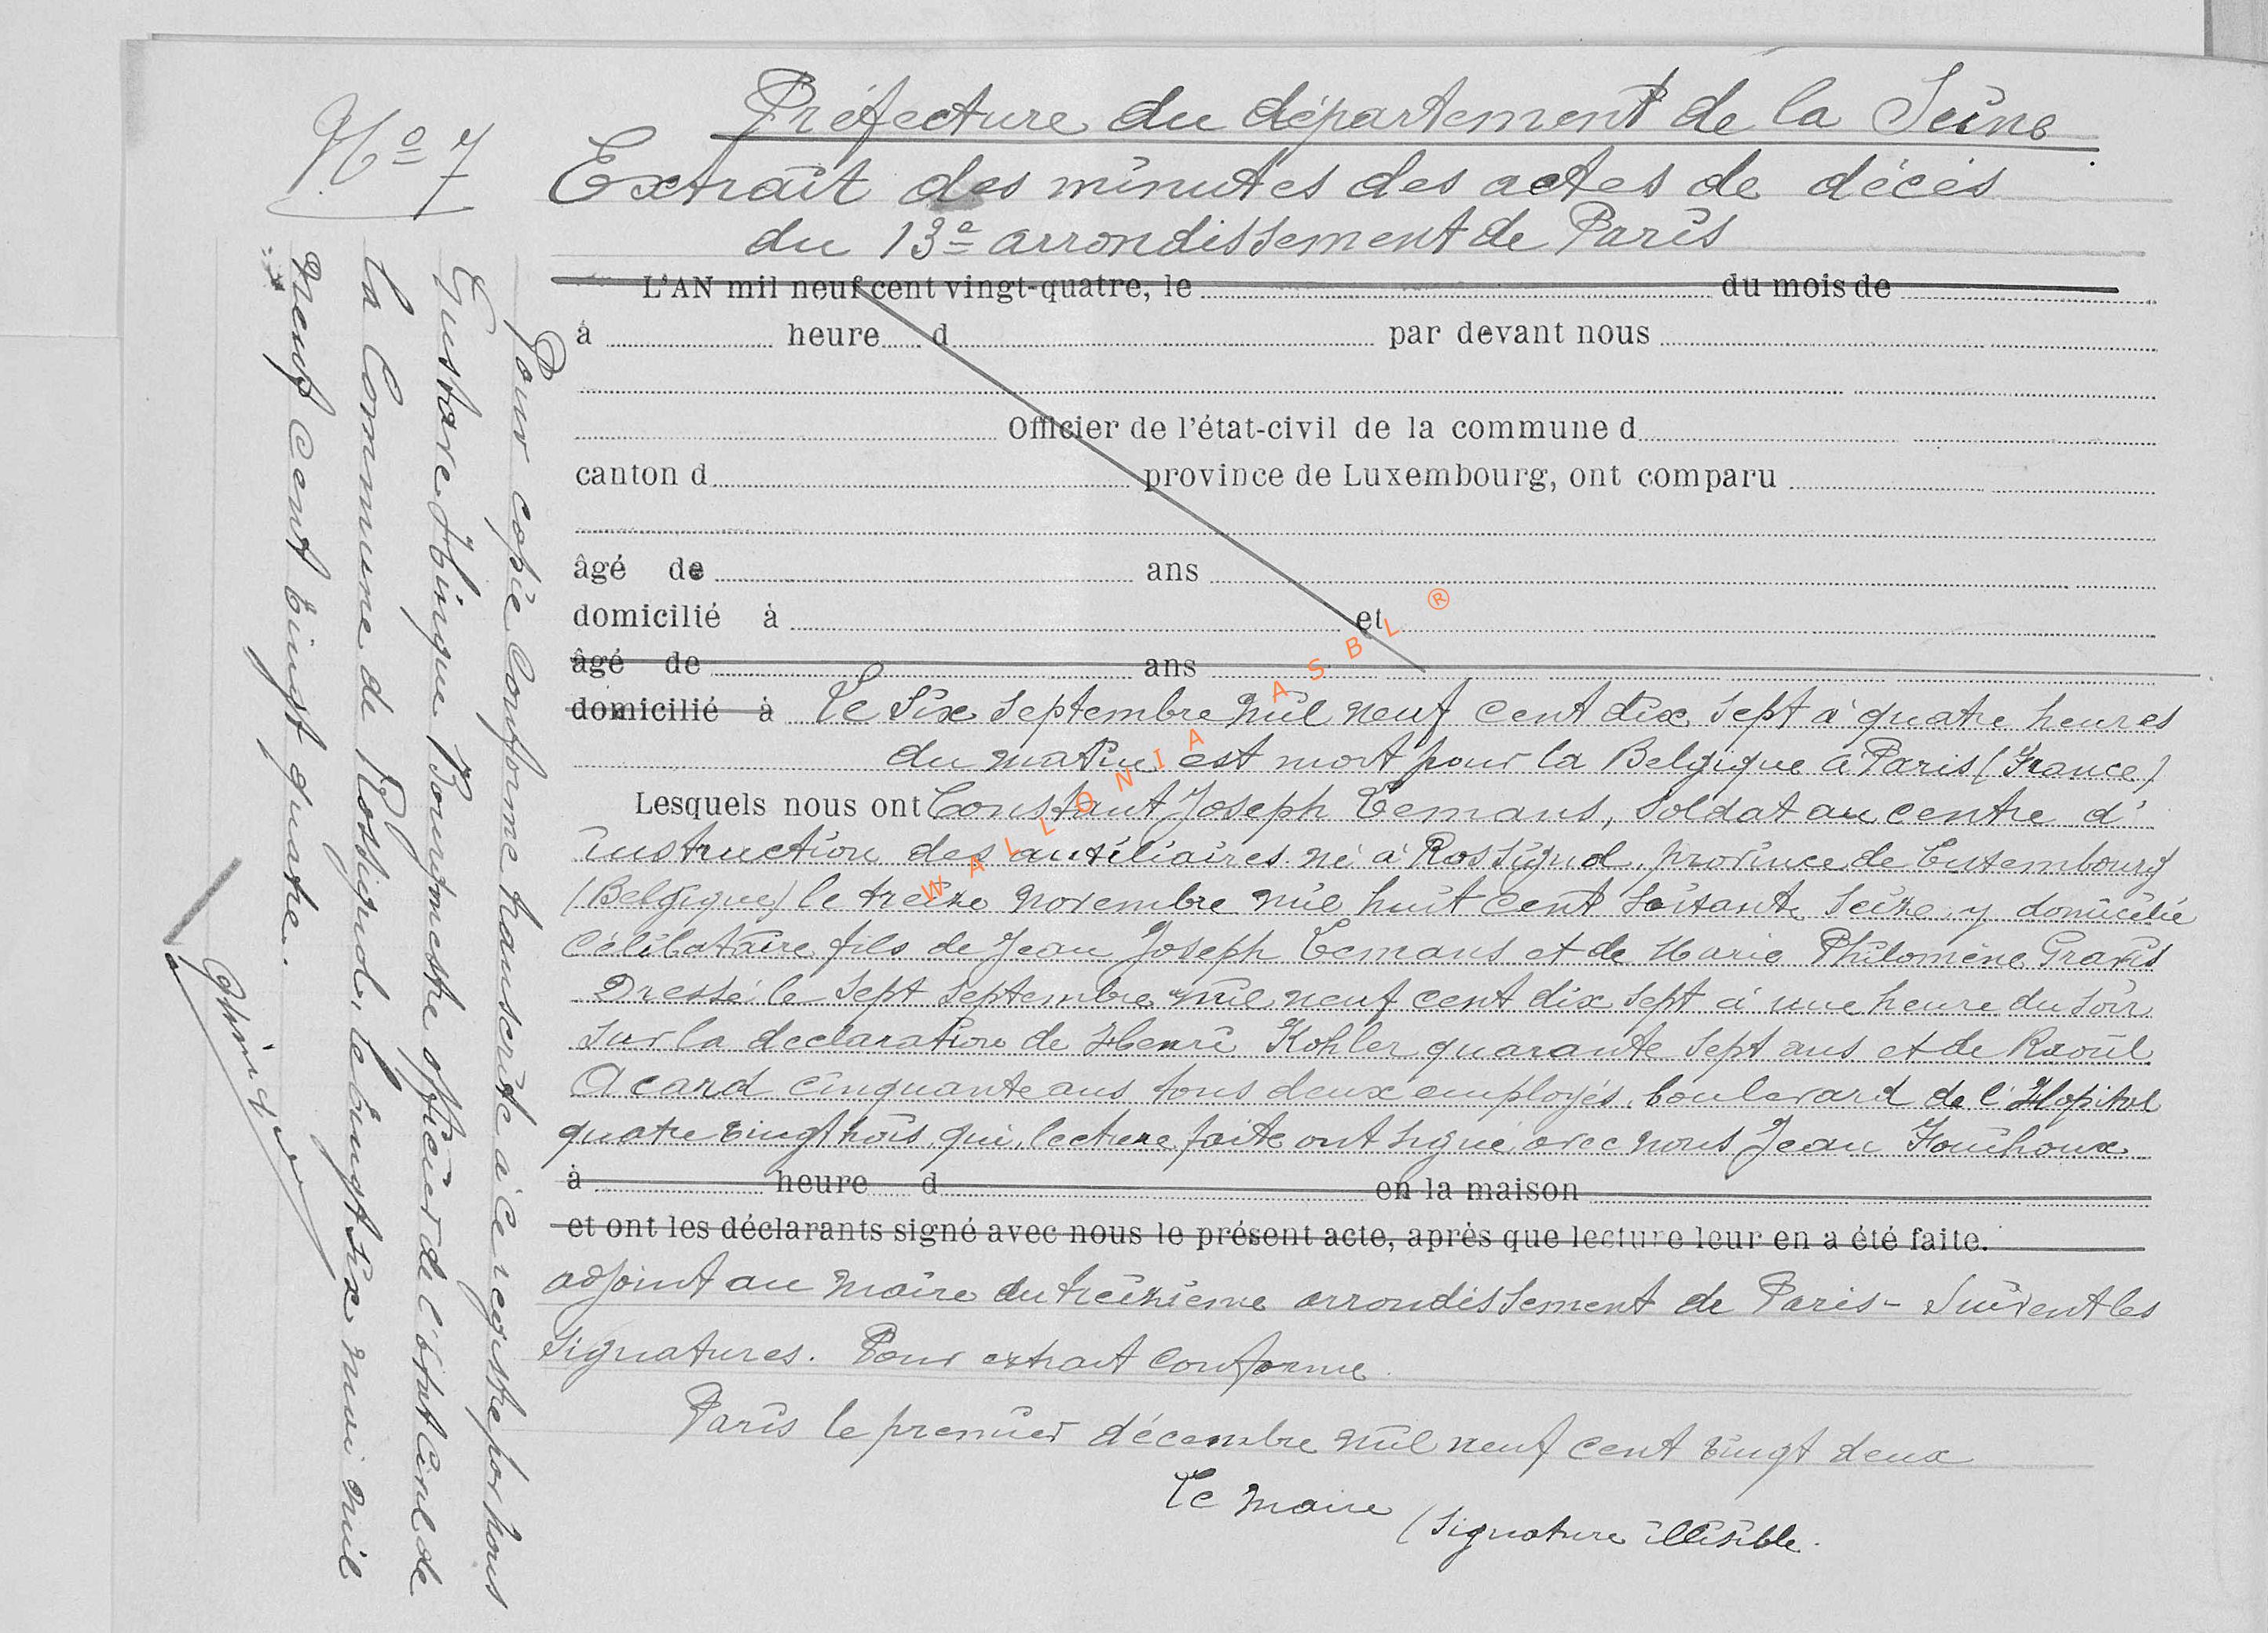 Nº 7
Préfecture du département de la Seine
Extrait des minutes des actes de décès
du 13e arrondissement de Paris
L'AN mil neuf cent vingt-quatre, le du mois de
à heure d par devant nous
Officier de l'état-civil de la commune d
canton d province de Luxembourg, ont comparu
âgé de ans
domicilié à et
âgé de ans
domicilié à Le Six Septembre mil neuf cent dix sept à quatre heures
du matin est mort pour la Belgique à Paris (France)
Lesquels nous ont Constant Joseph Lemans, Soldat au centre d'
instruction des auxiliaires né à Rossignol, province de Luxembourg
(Belgique) le treize novembre mil huit cent soixante seize y domicilié
Célibataire fils de Jean Joseph Lemans et de Marie Philomène Gravis
Dressé le sept septembre mil neuf cent dix sept à une heure du soir
sur la declaration de Henri Kohler quarante sept ans et de Raoul
Acard cinquante ans tous deux employés, boulevard de l'Hopital
quatre vingt trois qui, lecture faite ont signé avec nous Jean Fouihoux
à heure d en la maison
et ont les déclarants signé avec nous le présent acte, après que lecture leur en a été faite.
adjoint au maire du treizième arrondissement de Paris - Suivent les
signatures. Pour extrait conforme
Paris le premier décembre mil neuf cent vingt deux
Le maire (signature illisible.
Pour copie conforme transcrite à ce registre par nous
Gustave Hinque Bourgmestre officier de l'état civil de
la Commune de Rossignol, le vingt six mai mil
neuf cent vingt quatre.
GHinque
WALLONIA ASBL ®